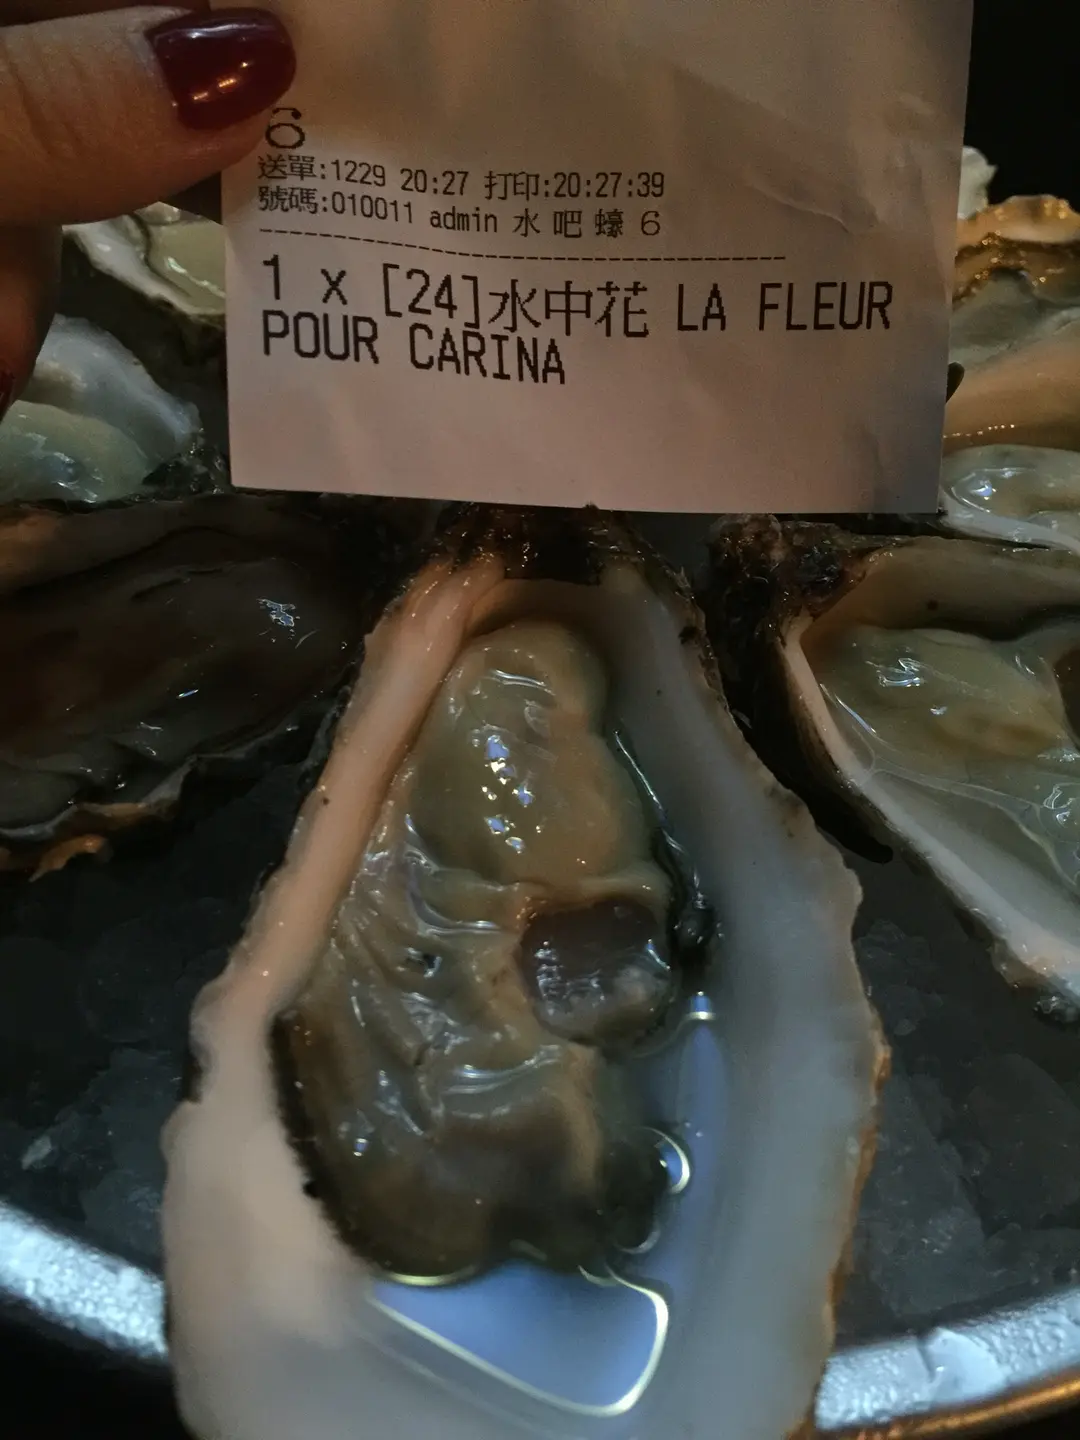 6
送單:1229 20:27 打印:20:27:39
號碼:010011 admin 水 吧 蠔 6
1 x [24]水中花 LA FLEUR
POUR CARINA